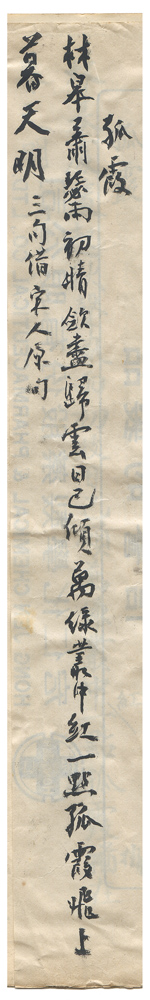 孤霞
林皋肅瑟雨初晴斂盡歸雲日已傾萬綠叢中紅一點孤霞飛上
暮天明三句借宋人原句